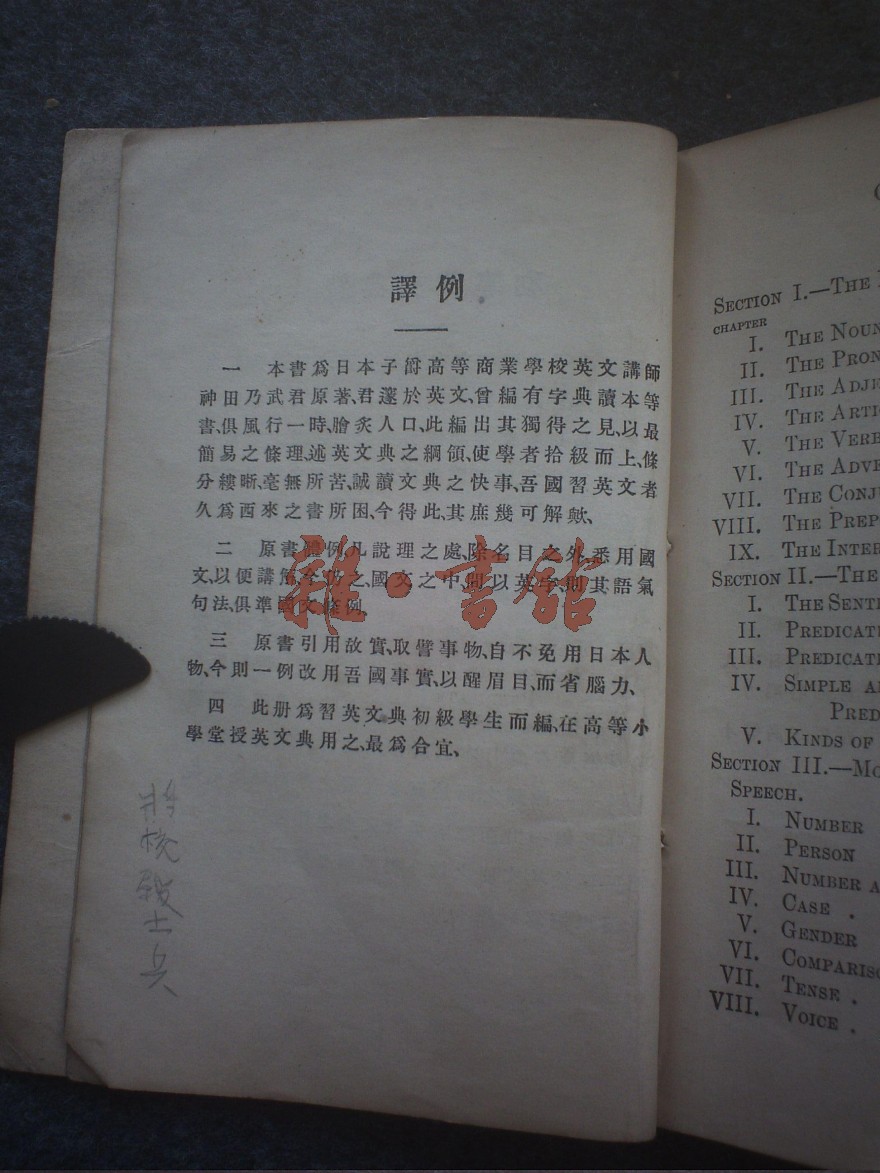 譯例
一 本書爲日本子爵高等商業學校英文講師
神田乃武君原著、君邃於英文、曾編有字典讀本等
書、俱風行一時、膾炙人口、此編出其獨得之見、以最
簡易之條理、述英文典之綱領、使學者拾級而上、條
分縷晰、毫無所苦、誠讀文典之快事、吾國習英文者
久爲西來之書所困、今得此、其庶幾可解歟、
二 原書體例、凡說理之處、除名目之外、悉用國
文、以便講解、今仍之、國文之中、別以英字、則其語氣
句法、俱準國文條例、
三 原書引用故實、取譬事物、自不免用日本人
物、今則一例改用吾國事實、以醒眉目、而省腦力、
四 此册爲習英文典初級學生而編、在高等小
學堂授英文典用之、最爲合宜、
將校
士兵
雜·書館
SECTION I.—THE
CHAPTER
I. THE NOUN
II. THE PRON
III. THE ADJE
IV. THE ARTIC
V. THE VERB
VI. THE ADVE
VII. THE CONJ
VIII. THE PREP
IX. THE INTER
SECTION II.—THE
I. THE SENT
II. PREDICATI
III. PREDICATI
IV. SIMPLE A
PRED
V. KINDS OF
SECTION III.—MO
SPEECH.
I. NUMBER
II. PERSON
III. NUMBER A
IV. CASE .
V. GENDER
VI. COMPARISO
VII. TENSE .
VIII. VOICE .